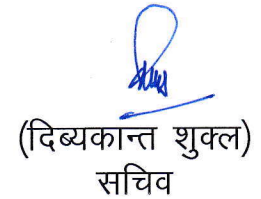 (दिब्यकान्त शुक्ल)
सचिव